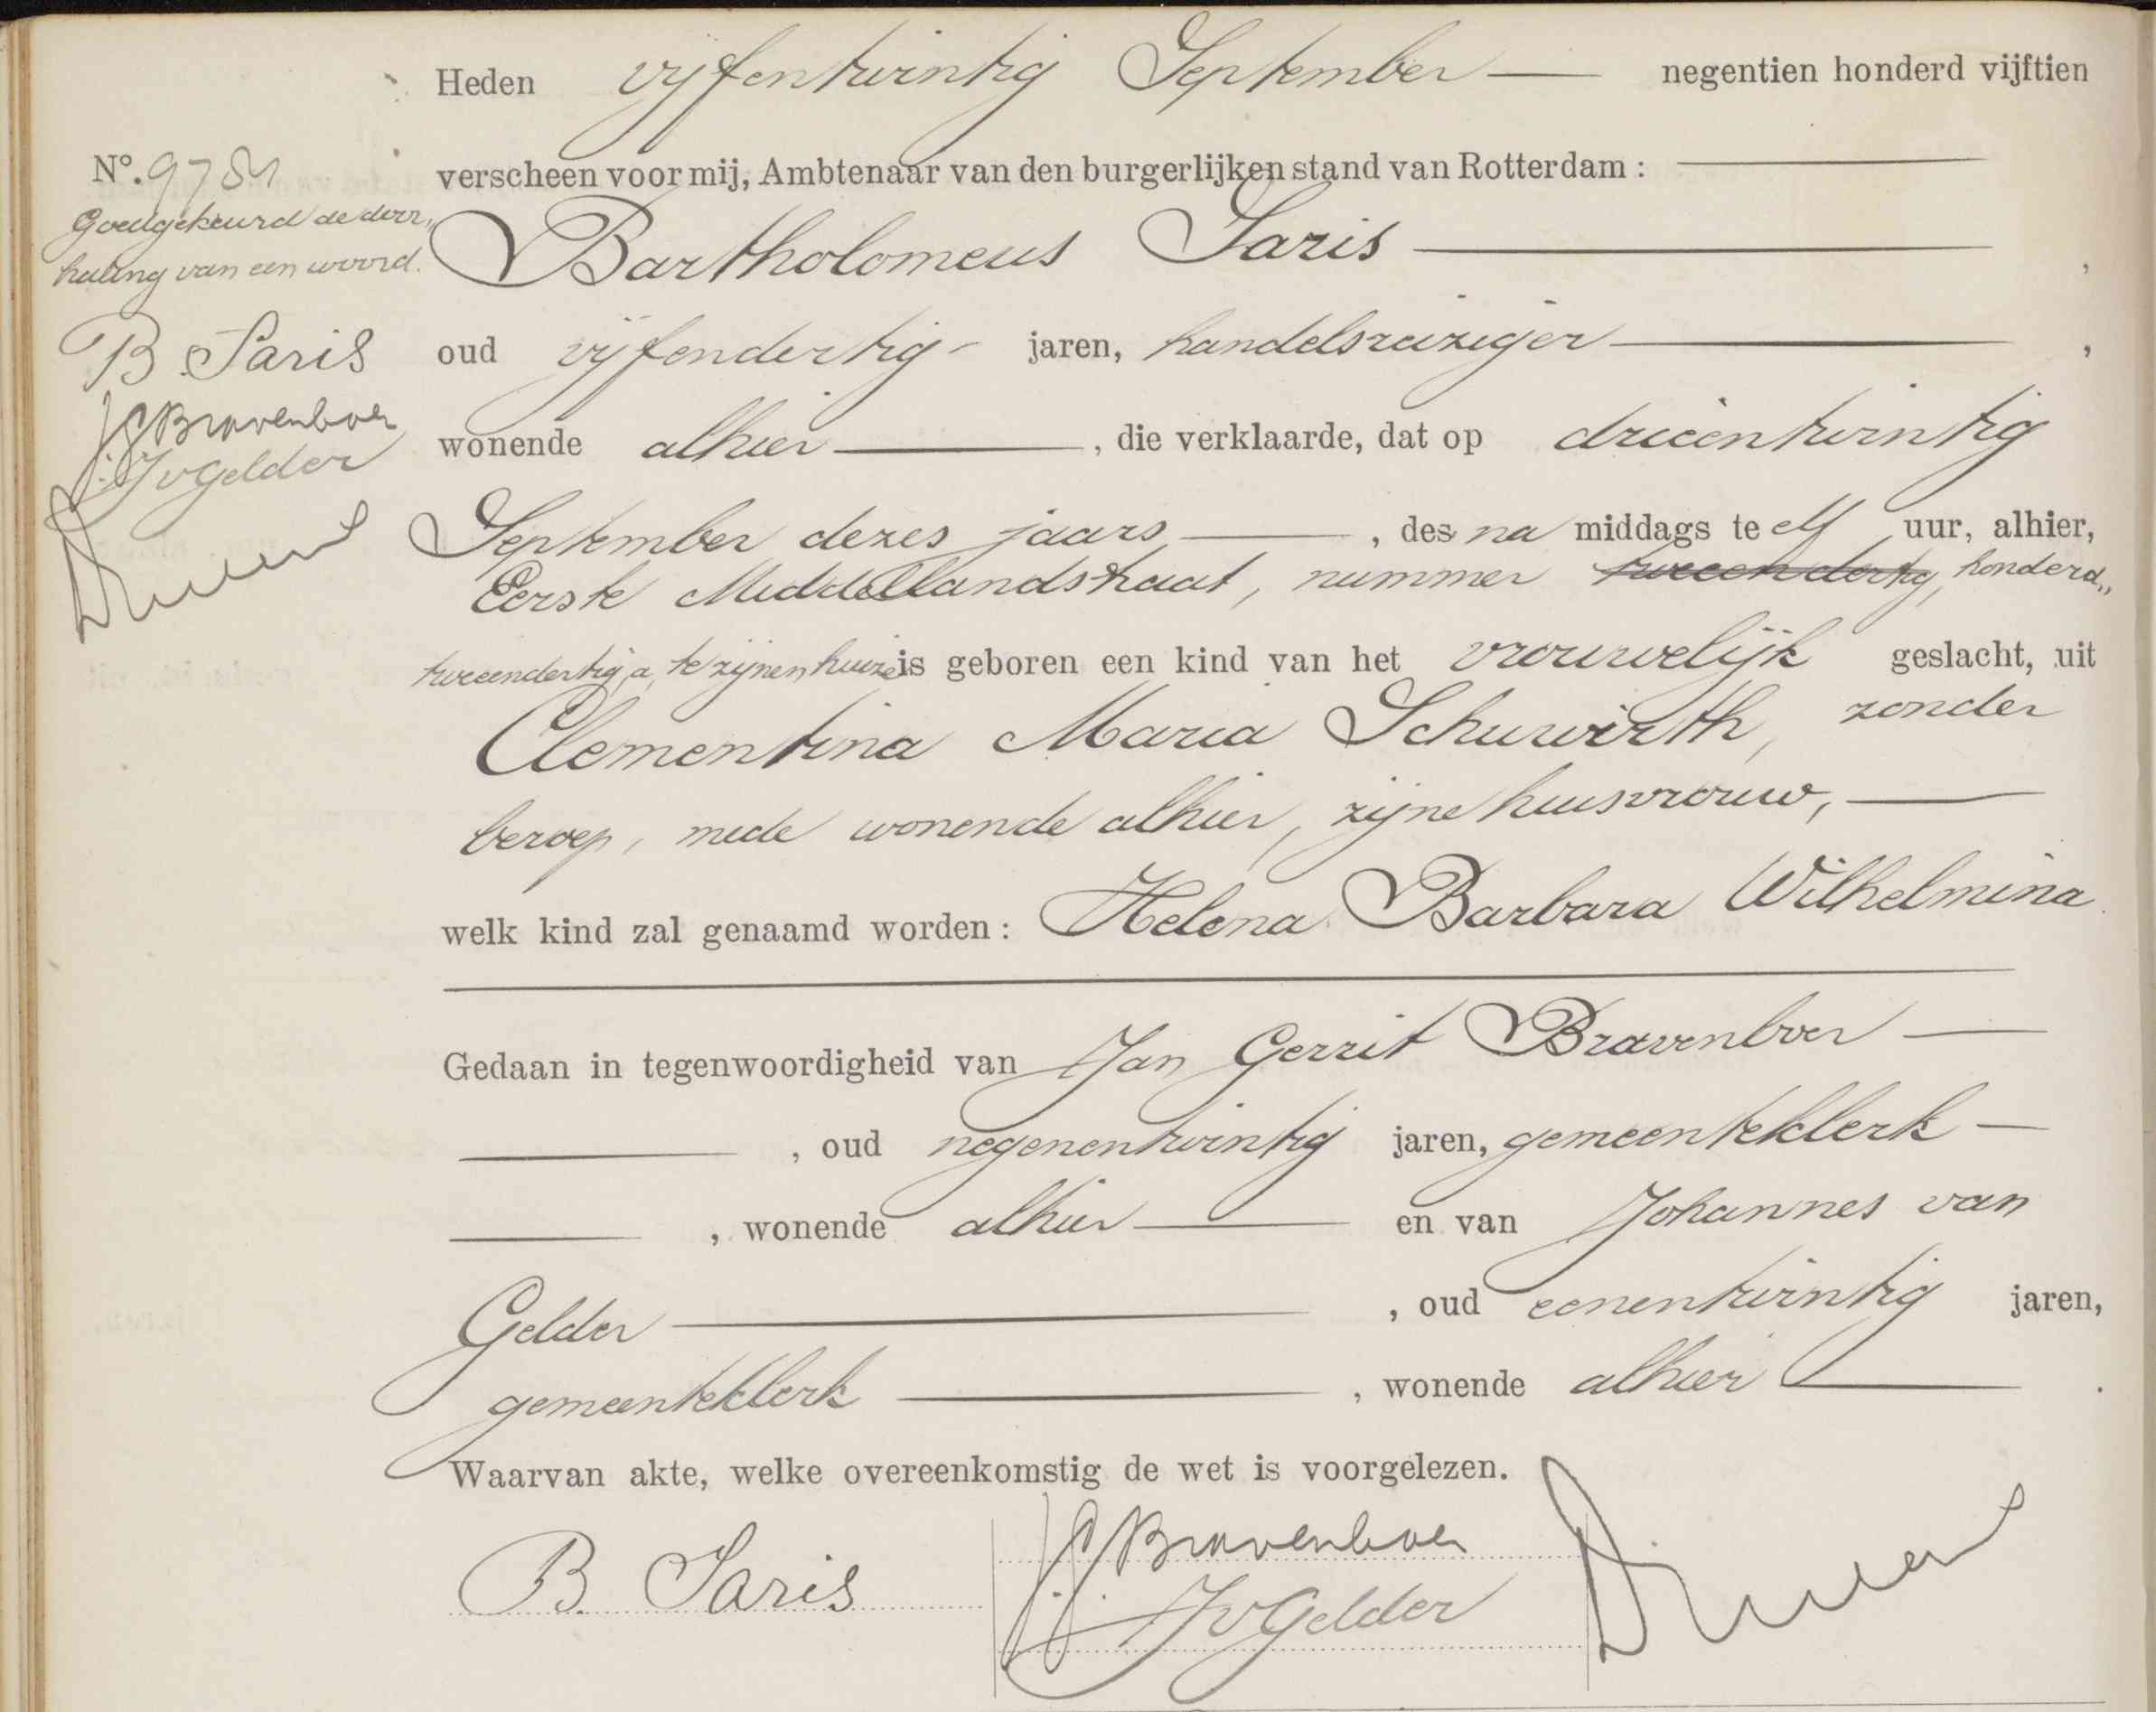 Heden vijfentwintig September negentien honderd vijftien
Nº. 9781
verscheen voor mij, Ambtenaar van den burgerlijken stand van Rotterdam:
Goedgekeurd de door„
haling van een woord.
B Saris
JGBravenboer
JvGelder
Bartholomeus Saris,
oud vijfendertig jaren, handelsreiziger,
wonende alhier, die verklaarde, dat op drieëntwintig
September dezes jaars, des na middags te elf uur, alhier,
Eerste Middellandstraat, nummer tweeendertig, honderd„
tweeendertig a, te zijnen huize is geboren een kind van het vrouwelijk geslacht, uit
Clementina Maria Schuwirth, zonder
beroep, mede wonende alhier, zijne huisvrouw,
welk kind zal genaamd worden: Helena Barbara Wilhelmina.
Gedaan in tegenwoordigheid van Jan Gerrit Bravenboer
, oud negenentwintig jaren, gemeenteklerk
, wonende alhier en van Johannes van
Gelder, oud eenentwintig jaren,
gemeenteklerk, wonende alhier.
Waarvan akte, welke overeenkomstig de wet is voorgelezen.
B. Saris
JGBravenboer
JvGelder